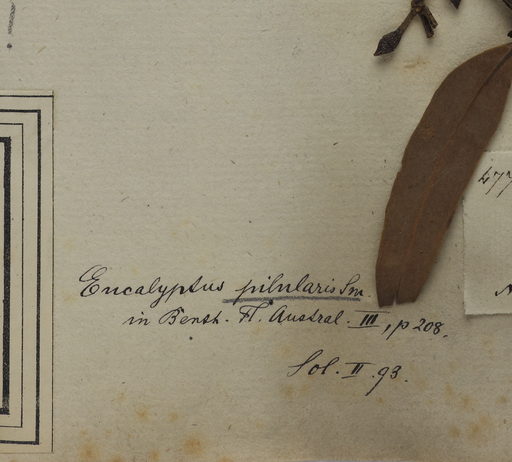 Eucalyptus pilularis Sm.
in Benth. Fl. Austral. III, p 208.
Sol. II. 93.
477